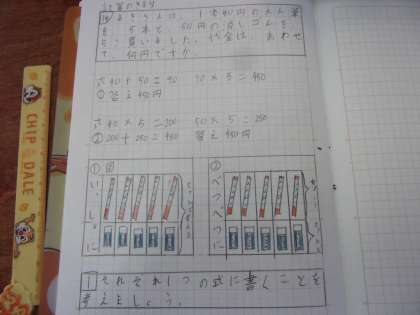 計算のきまり
1本40円のえん筆
を、5本と、50円の消しゴムを
5こ買いました。代金は、あわせ
て、何円ですか。
式 40+50=90 90×5=450
① 答え450円
式 40×5=200 50×5=250
② 200+250=450 答え 450円
① 図
いっしょに
②
べつべつに
1 それぞれ1つの式に書くことを
考えましょう。
CHIP & DALE